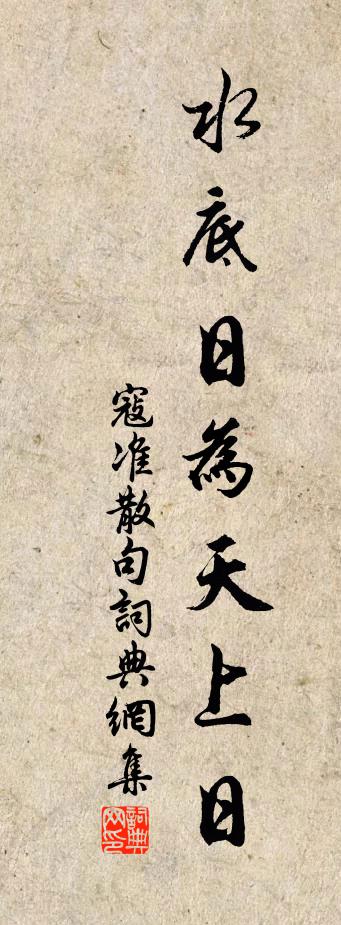 水底日為天上日
寇准散句詞典網集
詞典网印